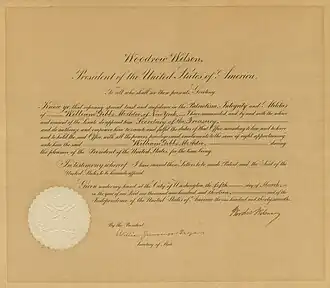 Woodrow Wilson,
President of the United States of America,
To all who shall see these presents, Greeting:
Know ye that reposing special trust and confidence in the Patriotism, Integrity and Abilities
of William Gibbs McAdoo, of New York, I have nominated and by and with the advice
and consent of the Senate do appoint him Secretary of the Treasury,
and do authorize and empower him to execute and fulfil the duties of that Office according to law and to have
and to hold the said Office with all the powers, privileges and emoluments to the same of right appertaining
unto him the said William Gibbs McAdoo, during
the pleasure of the President of the United States for the time being.
In testimony whereof I have caused these Letters to be made Patent and the Seal of the
United States to be hereunto affixed.
Given under my hand at the City of Washington the fifth day of March,
in the year of our Lord one thousand nine hundred and thirteen, and of the
Independence of the United States of America the one hundred and thirty-seventh.
Woodrow Wilson
By the President:
William Jennings Bryan
Secretary of State.